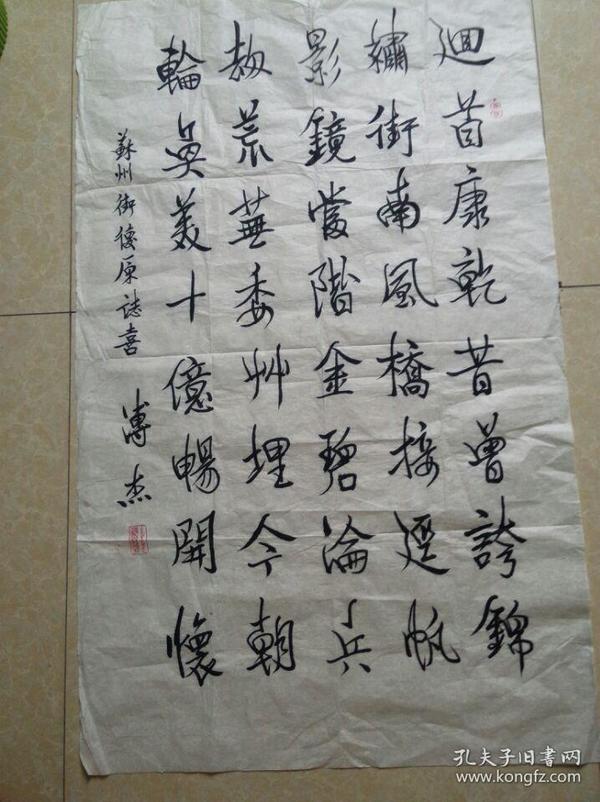 迴首康乾昔曾誇錦
繡街南風橋接逕帆
影鏡當階金碧淪兵
劫荒蕪委艸埋今朝
輪奐美十億暢開懷
蘇州街復原誌喜
溥杰
孔夫子旧书网
www.kongfz.com